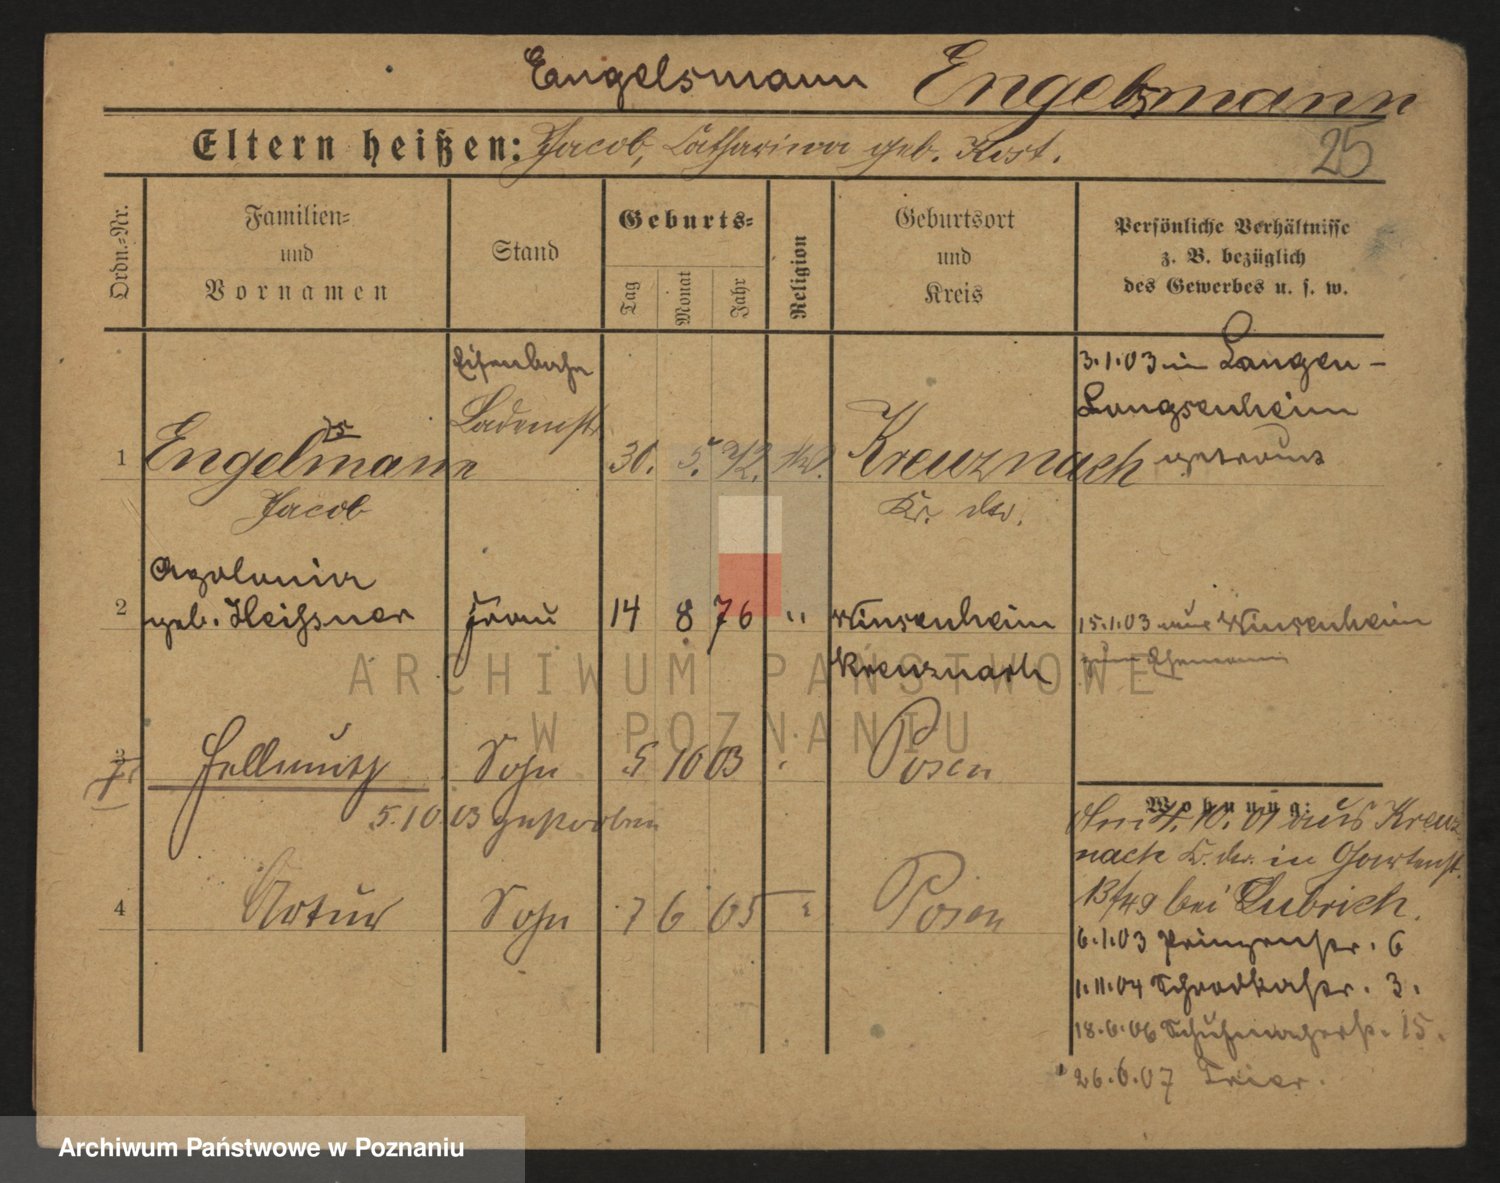 Engelsmann Engelsmann
Eltern heißen: Jacob, Catharina geb. Kist.
25
Ordn.-Nr.
Familien-
und
Vornamen
Stand
Geburts-
Tag
Monat
Jahr
Religion
Geburtsort
und
Kreis
Persönliche Verhältnisse
z. B. bezüglich
des Gewerbes u. s. w.
Eisenbahn
Lademstr
1 Engelsmann 30. 5. 72. Kreuznach
Jacob Kr. dto.
3.1.03 in Langen-
Longsenheim
getraut
Apolonia
2 geb. Heissner Frau 14 8 76 " Winsenheim
Kreuznach
15.1.03 aus Winsenheim
zum Ehemann
3 Hellmuth Sohn 5 10 03 Posen
5.10.03 gestorben
4 Artur Sohn 7 6 05 " Posen
Wohnung:
Am 4.10.01 aus Kreuz-
nach K. dto. in Gartenst.
13/49 bei Lubrich.
6.1.03 Prinzenstr. 6
1.11.04 Schrodkastr. 3.
18.6.06 Schuhmacherstr. 15.
26.6.07 Trier.
ARCHIWUM PAŃSTWOWE
W POZNANIU
Archiwum Państwowe w Poznaniu